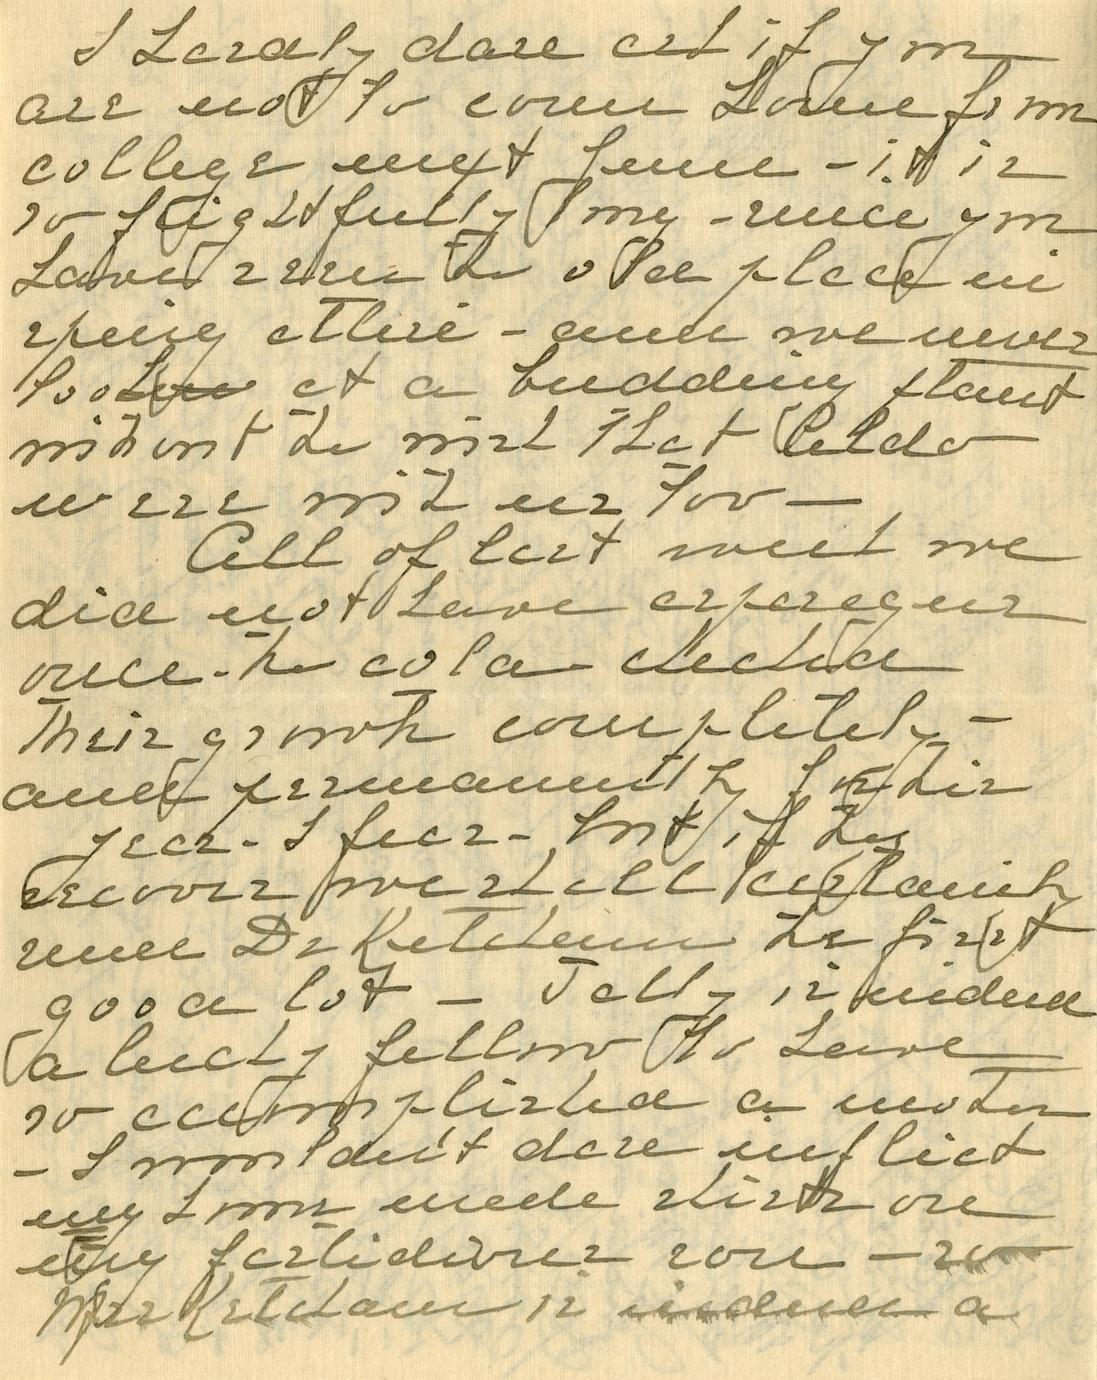 I hardly dare ask if you
are not to come home from
college next June - it is
so frightfully long - since you
have seen the old place in
spring attire - and we never
look at a budding plant
without the wish that Waldo
were with us too —
All of last week we
did not have asparagus
once - the cold checked
their growth completely -
and permanently for this
year - I fear - but if they
recover we shall certainly
send Dr Ketcham the first
good lot — Tally is indeed
a lucky fellow to have
so accomplished a mother
- I wouldn't dare inflict
my home made shirts on
my fastidious son - so
Mrs Ketcham is indeed a